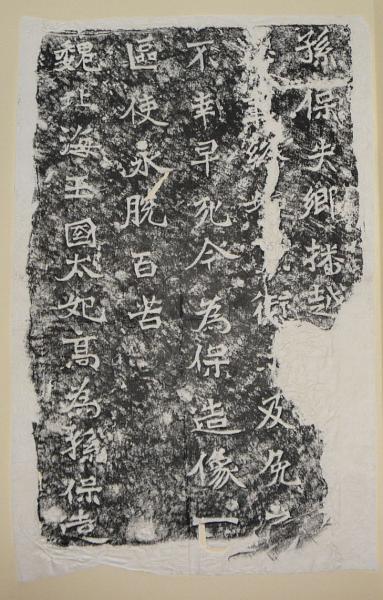 孫保失鄉播越
及免
不幸早死今為保造像一
區使永脫百苦
魏北海王國太妃高為孫保造